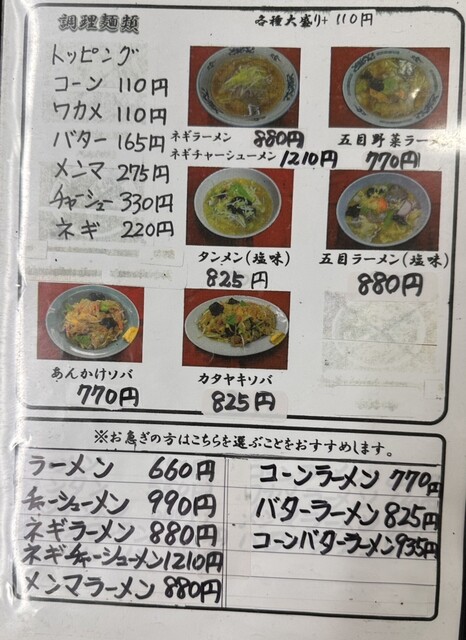 調理麺類
各種大盛り+ 110円
トッピング
コーン 110円
ワカメ 110円
バター 165円
メンマ 275円
チャーシュー 330円
ネギ 220円
ネギラーメン 880円
ネギチャーシューメン 1210円
五目野菜ラーメ
770円
タンメン(塩味)
825円
五目ラーメン(塩味)
880円
あんかけソバ
770円
カタヤキソバ
825円
※お急ぎの方はこちらを選ぶことをおすすめします。
ラーメン 660円
チャーシューメン 990円
ネギラーメン 880円
ネギチャーシューメン 1210円
メンマラーメン 880円
コーンラーメン 770円
バターラーメン 825円
コーンバターラーメン 935円